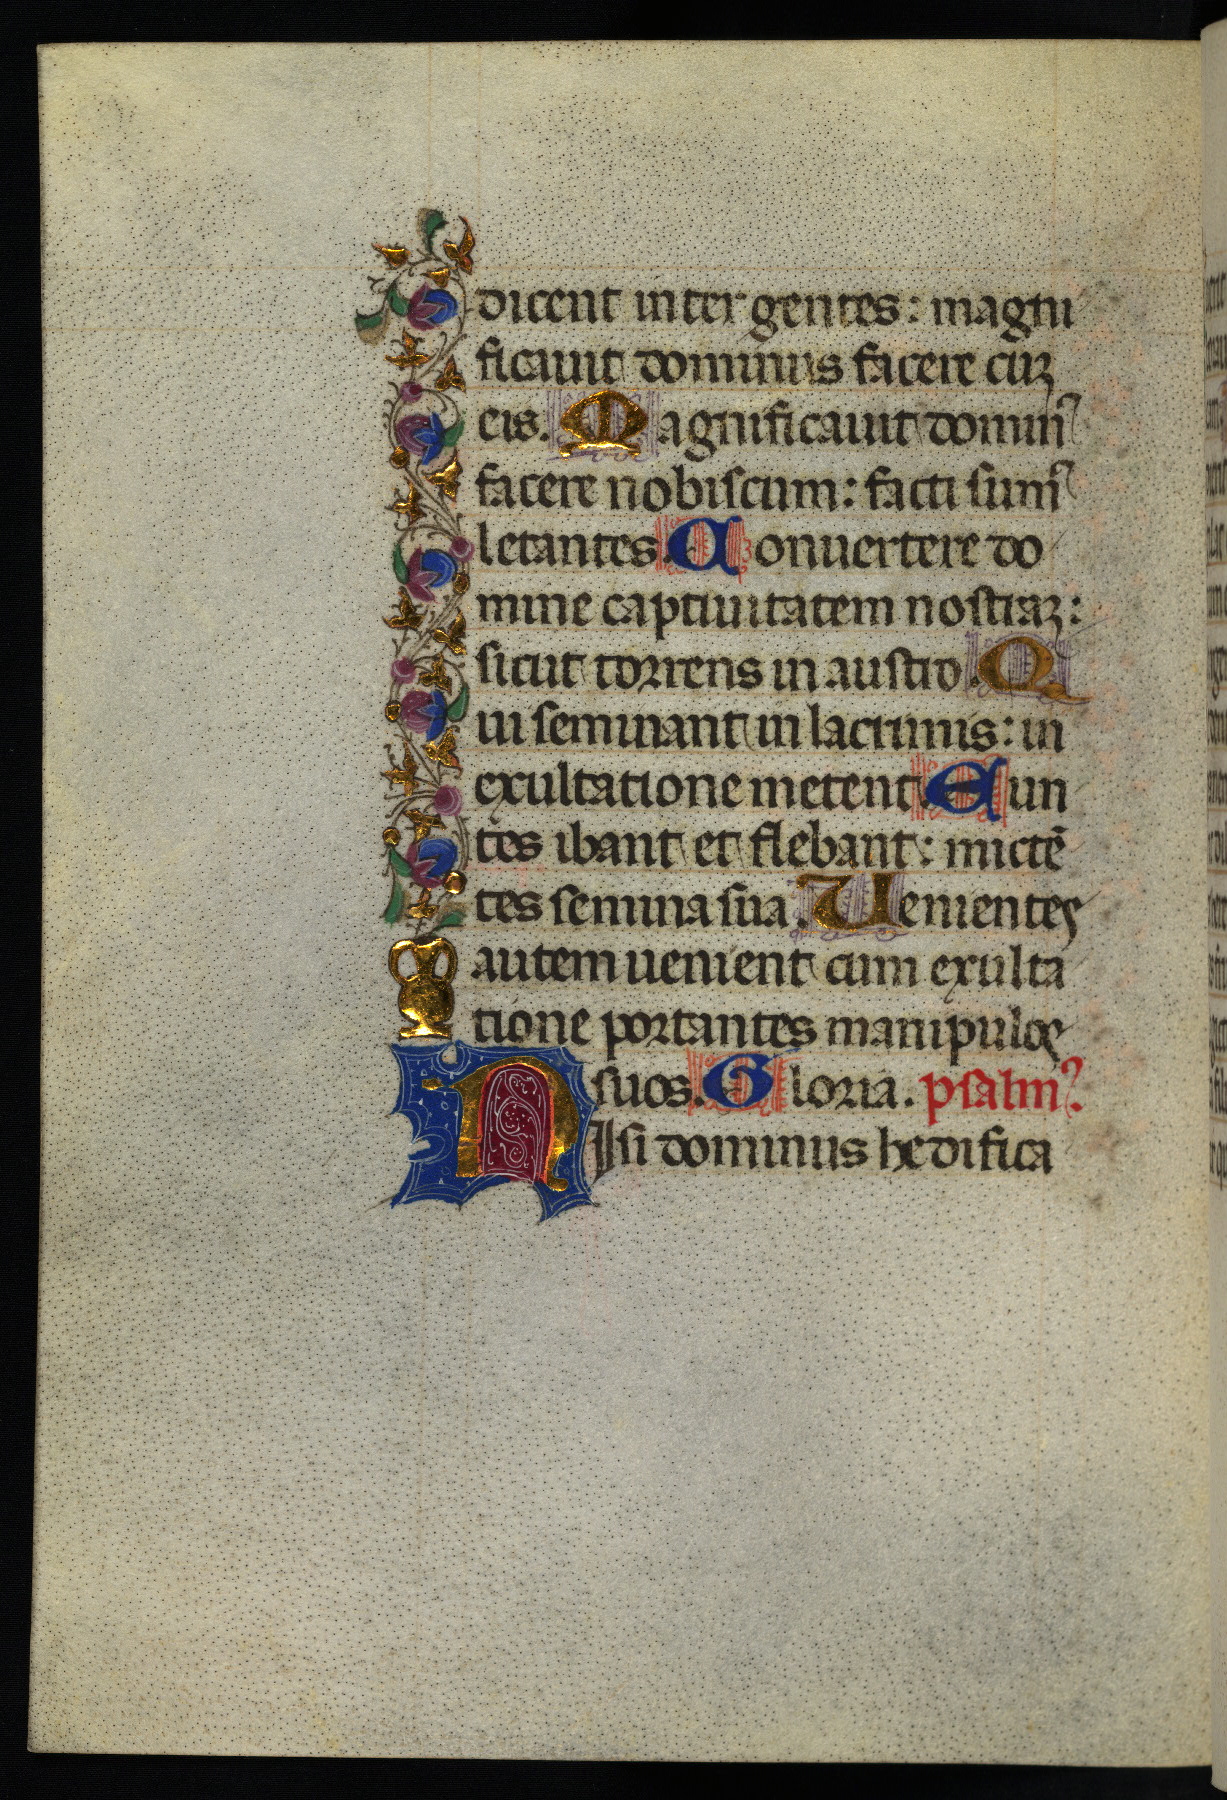 dicent inter gentes: magni
ficauit dominus facere cuꝫ
eis. Magnificauit domin᾽
facere nobiscum: facti sum᾽
letantes. Conuertere do
mine captiuitatem nostraꝫ:
sicut torrens in austro. Q
ui seminant in lacrimis: in
exultatione metent. Eun
tes ibant et flebant: mictē
tes semina sua. Uenientes
autem uenient cum exulta
tione portantes manipulos
suos. Gloria. psalm᾽.
NIsi dominus hedifica